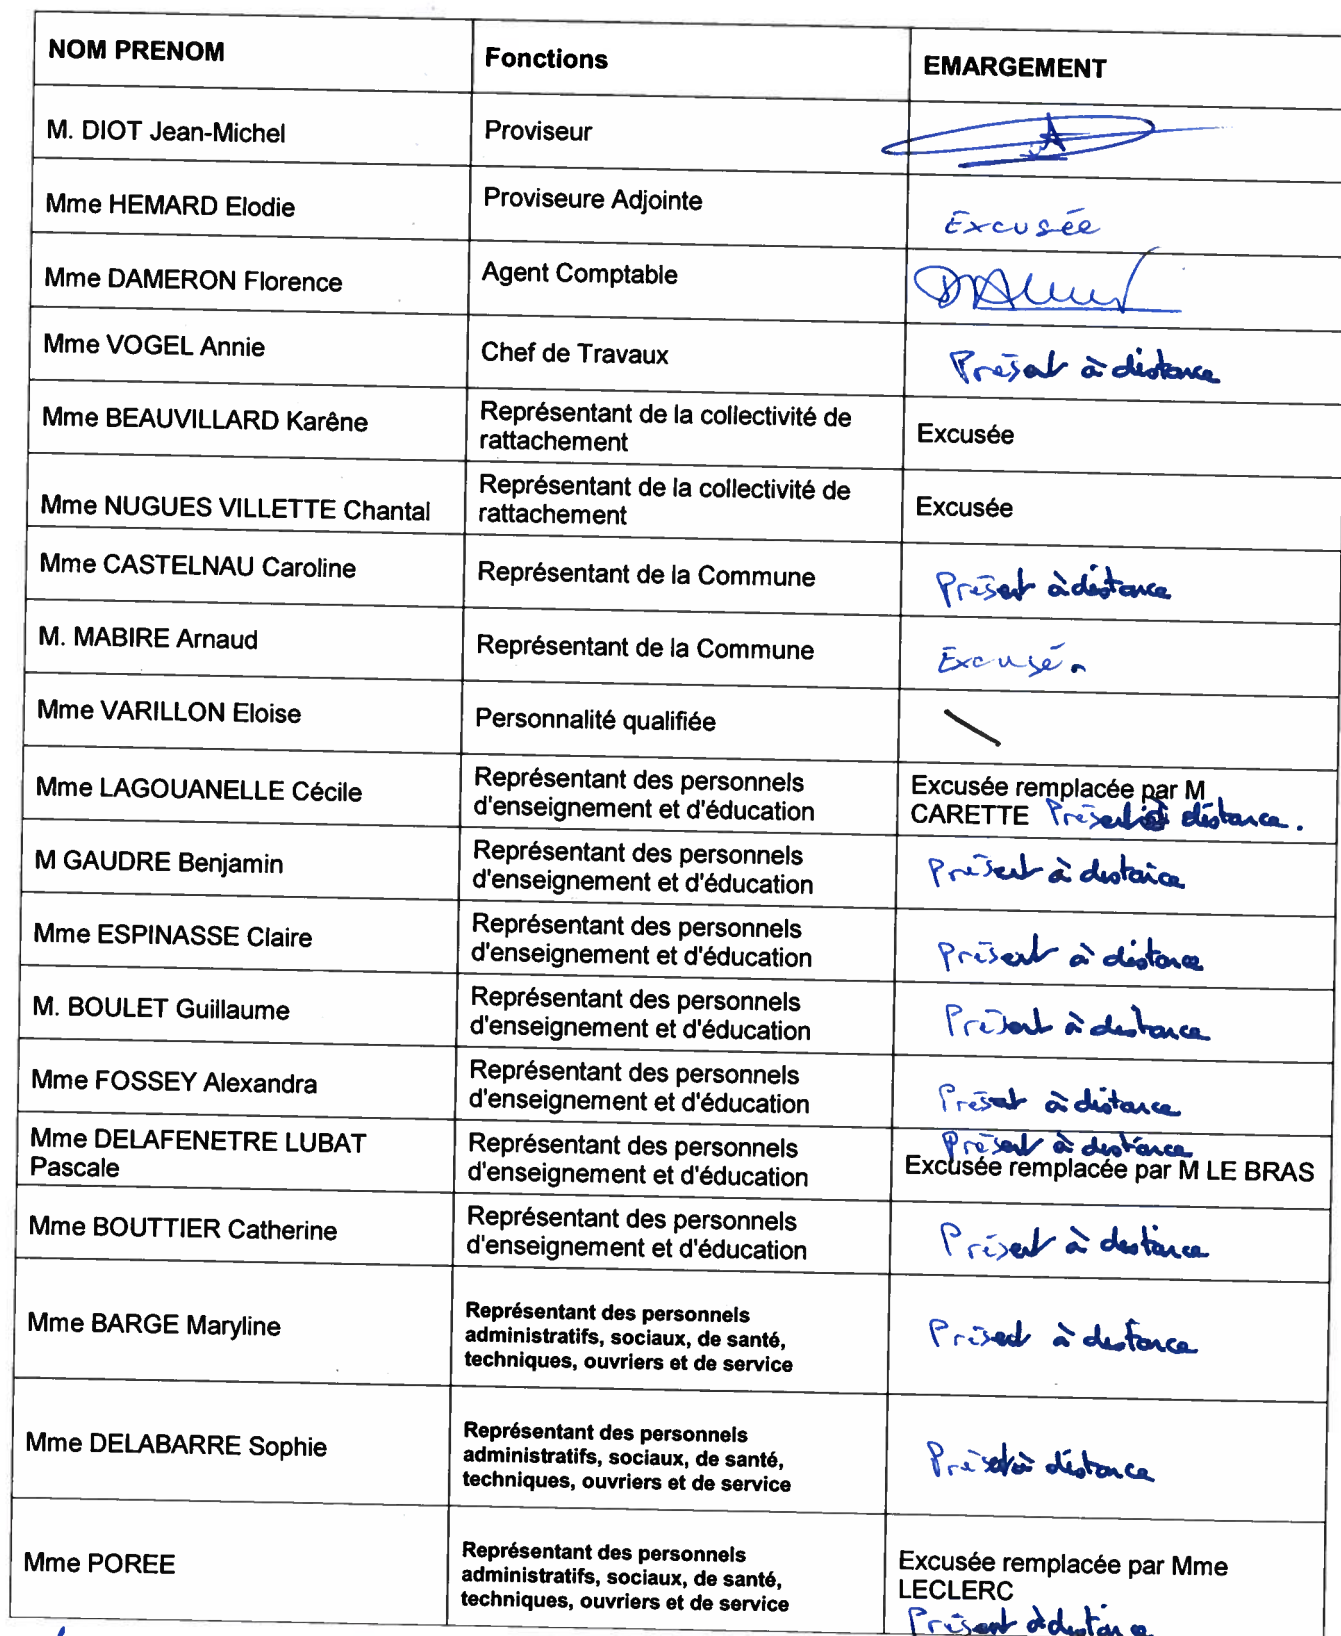 NOM PRENOM Fonctions EMARGEMENT
M. DIOT Jean-Michel Proviseur
Mme HEMARD Elodie Proviseure Adjointe Excusée
Mme DAMERON Florence Agent Comptable
Mme VOGEL Annie Chef de Travaux Présent à distance
Mme BEAUVILLARD Karêne Représentant de la collectivité de
rattachement Excusée
Mme NUGUES VILLETTE Chantal Représentant de la collectivité de
rattachement Excusée
Mme CASTELNAU Caroline Représentant de la Commune Présent à distance
M. MABIRE Arnaud Représentant de la Commune Excusé.
Mme VARILLON Eloise Personnalité qualifiée
Mme LAGOUANELLE Cécile Représentant des personnels
d'enseignement et d'éducation Excusée remplacée par M
CARETTE Présent à distance.
M GAUDRE Benjamin Représentant des personnels
d'enseignement et d'éducation Présent à distance
Mme ESPINASSE Claire Représentant des personnels
d'enseignement et d'éducation Présent à distance
M. BOULET Guillaume Représentant des personnels
d'enseignement et d'éducation Présent à distance
Mme FOSSEY Alexandra Représentant des personnels
d'enseignement et d'éducation Présent à distance
Mme DELAFENETRE LUBAT
Pascale Représentant des personnels
d'enseignement et d'éducation Présent à distance
Excusée remplacée par M LE BRAS
Mme BOUTTIER Catherine Représentant des personnels
d'enseignement et d'éducation Présent à distance
Mme BARGE Maryline Représentant des personnels
administratifs, sociaux, de santé,
techniques, ouvriers et de service Présent à distance
Mme DELABARRE Sophie Représentant des personnels
administratifs, sociaux, de santé,
techniques, ouvriers et de service Présent à distance
Mme POREE Représentant des personnels
administratifs, sociaux, de santé,
techniques, ouvriers et de service Excusée remplacée par Mme
LECLERC
Présent à distance